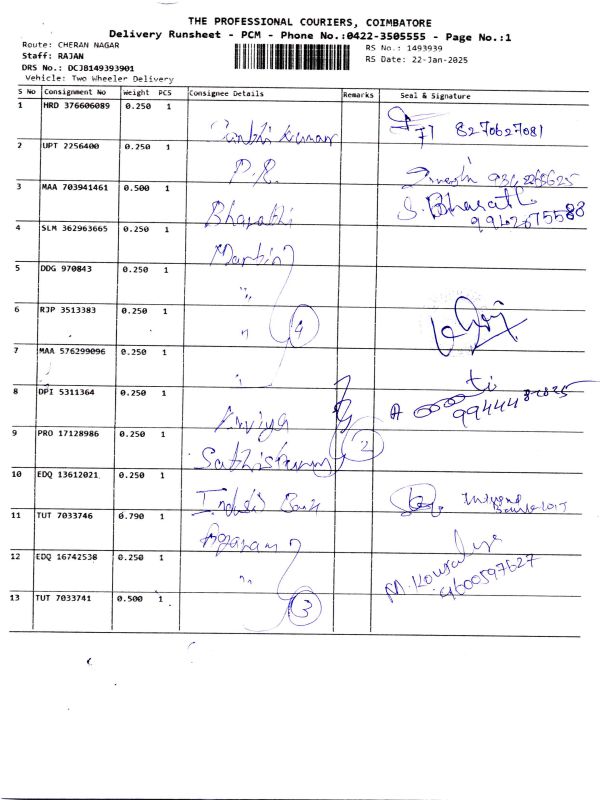 THE PROFESSIONAL COURIERS, COIMBATORE
Delivery Runsheet - PCM - Phone No.:0422-3505555 - Page No.:1
Route: CHERAN NAGAR
RS No.: 1493939
Staff: RAJAN
RS Date: 22-Jan-2025
DRS No.: DCJB149393901
Vehicle: Two Wheeler Delivery
S No Consignment No Weight PCS Consignee Details Remarks Seal & Signature
1 HRD 376606089 0.250 1
8270627081
2 UPT 2256400 0.250 1
P.R.
3 MAA 703941461 0.500 1
Bharathi S. Bharath
9942675588
4 SLM 362963665 0.250 1
Martin
5 DDG 970843 0.250 1
"
6 RJP 3513383 0.250 1
" 4
7 MAA 576299096 0.250 1
"
8 DPI 5311364 0.250 1
9 PRO 17128986 0.250 1
2
10 EDQ 13612021 0.250 1
11 TUT 7033746 0.790 1
12 EDQ 16742538 0.250 1
" M. Kousalya
9600597627
13 TUT 7033741 0.500 1
3